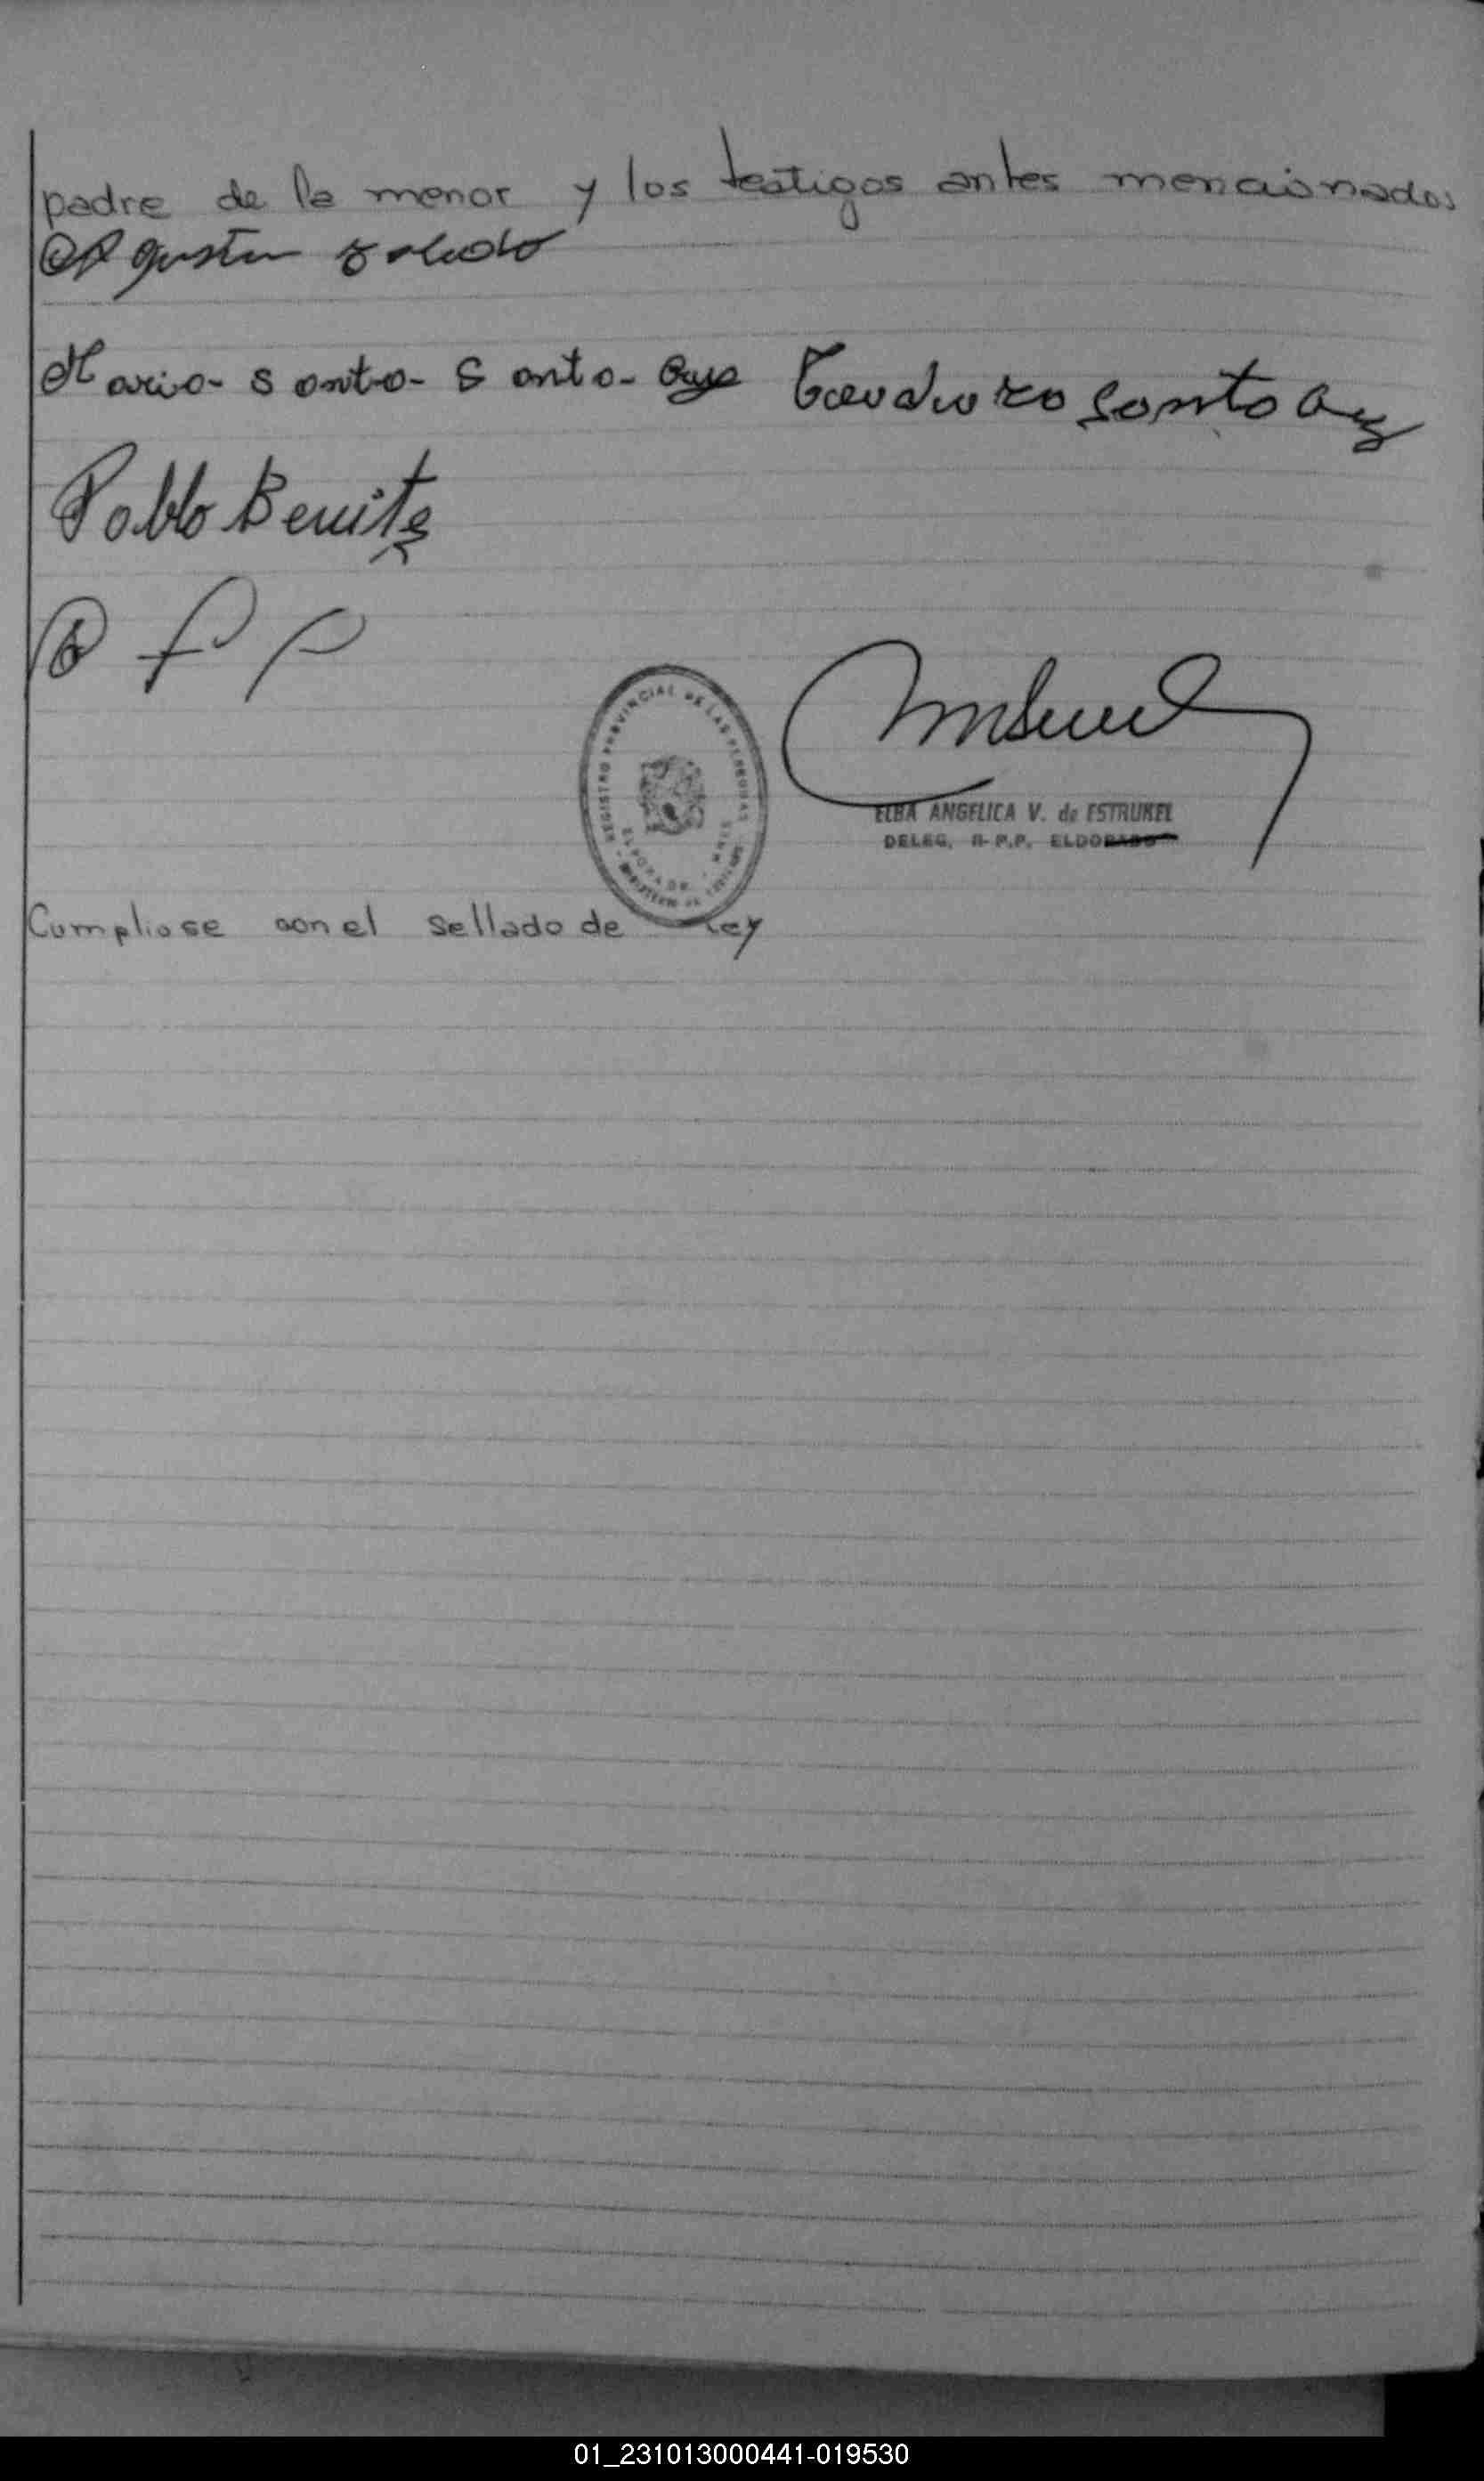 padre de la menor y los testigos antes mencionados
Agustin
Mario Santo Santo Cruz
Santo Cruz
Pablo Benitez
REGISTRO PROVINCIAL DE LAS PERSONAS
ELDORADO
ELBA ANGELICA V. de ESTRUKEL
DELEG. R.P.P. ELDORADO
Cumpliose con el sellado de Ley
01_231013000441-019530